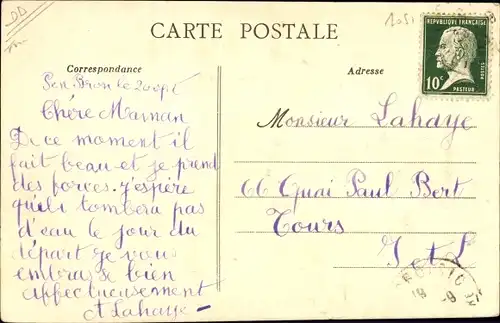 CARTE POSTALE
Correspondance
Adresse
RÉPUBLIQUE FRANÇAISE
10c
POSTES
PASTEUR
Pen Bron le 20
Chère Maman
De ce moment il
fait beau et je prend
des forces. j'espère
quel tombera pas
d'eau le jour du
départ je vous
embrasse bien
affectueusement
A Lahaye
Monsieur Lahaye
66 Quai Paul Bert
Tours
I et L